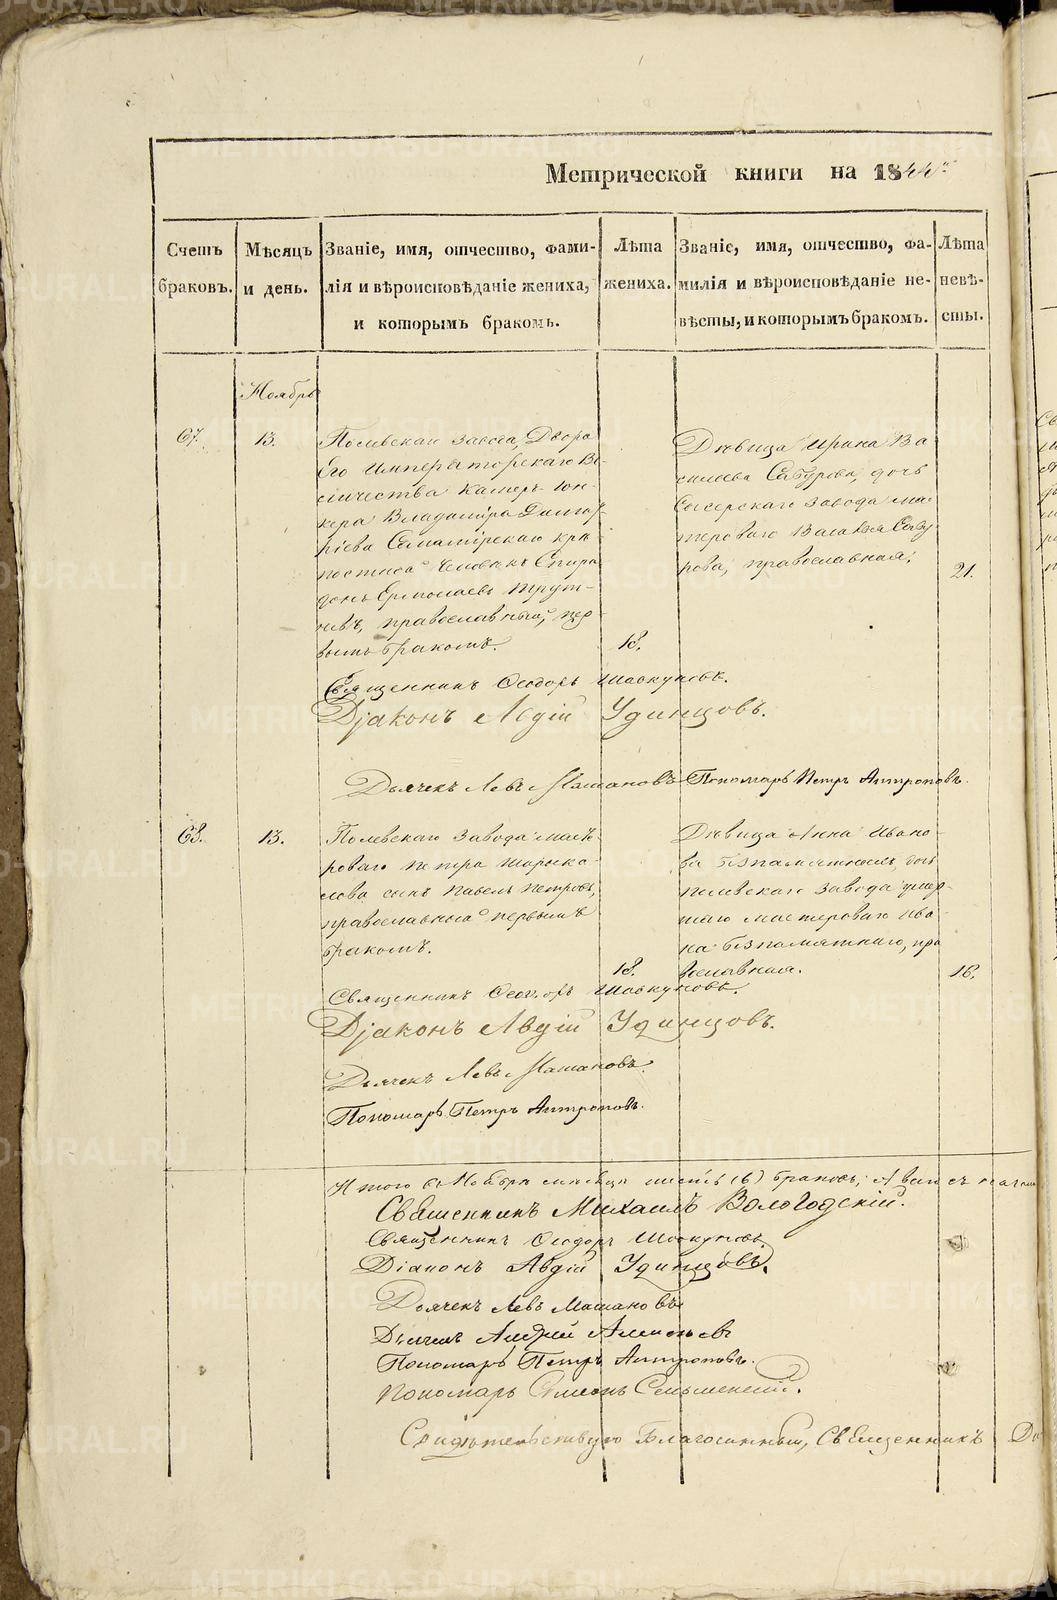 Метрической книги на 1844й
Счетъ браковъ.
Мѣсяцъ и день.
Званіе, имя, отчество, фами-
лія и вѣроисповѣданіе жениха,
и которымъ бракомъ.
Лѣта жениха.
Званіе, имя, отчество, фа-
милія и вѣроисповѣданіе не-
вѣсты, и которымъ бракомъ.
Лѣта невѣ-
сты.
Ноябрь
67.
13.
Полевскаго завода, Двора
Его Императорскаго Ве-
личества Камеръ-Юн-
кера Владимира
крѣ-
постной человѣкъ Спири-
донъ Ермолаевъ
православный, пер-
вымъ бракомъ.
18.
Дѣвица Ирина Ва
сильева Сабурова, дочь
Сысерскаго завода мас-
тероваго Василья Сабу
рова, православная.
21.
Священникъ Ѳеодоръ Шавкуновъ.
Діаконъ Авдій Удинцовъ.
Дьячекъ Левъ Машановъ Пономарь Петръ Антроповъ.
68.
13.
Полевскаго завода масте
роваго Петра
сынъ Павелъ Петровъ,
православный первымъ
бракомъ.
18.
Дѣвица Анна Ивано-
ва Безпамятныхъ, дочь
Полевскаго завода умер-
шаго мастероваго Ива-
на Безпамятнаго, пра
вославная.
16.
Священникъ Ѳеодоръ Шавкуновъ.
Діаконъ Авдій Удинцовъ.
Дьячекъ Левъ Машановъ.
Пономарь Петръ Антроповъ.
Итого въ Ноябрѣ мѣсяцѣ шесть (6) браковъ;
Священникъ Михаилъ Вологодскій.
Священникъ Ѳеодоръ Шавкуновъ.
Діаконъ Авдій Удинцовъ.
Дьячекъ Левъ Машановъ
Дьячекъ Андрей
Пономарь Петръ Антроповъ.
Пономарь Симеонъ
Свидѣтельствую Благочинный, Священникъ
METRIKI.GASO-URAL.RU